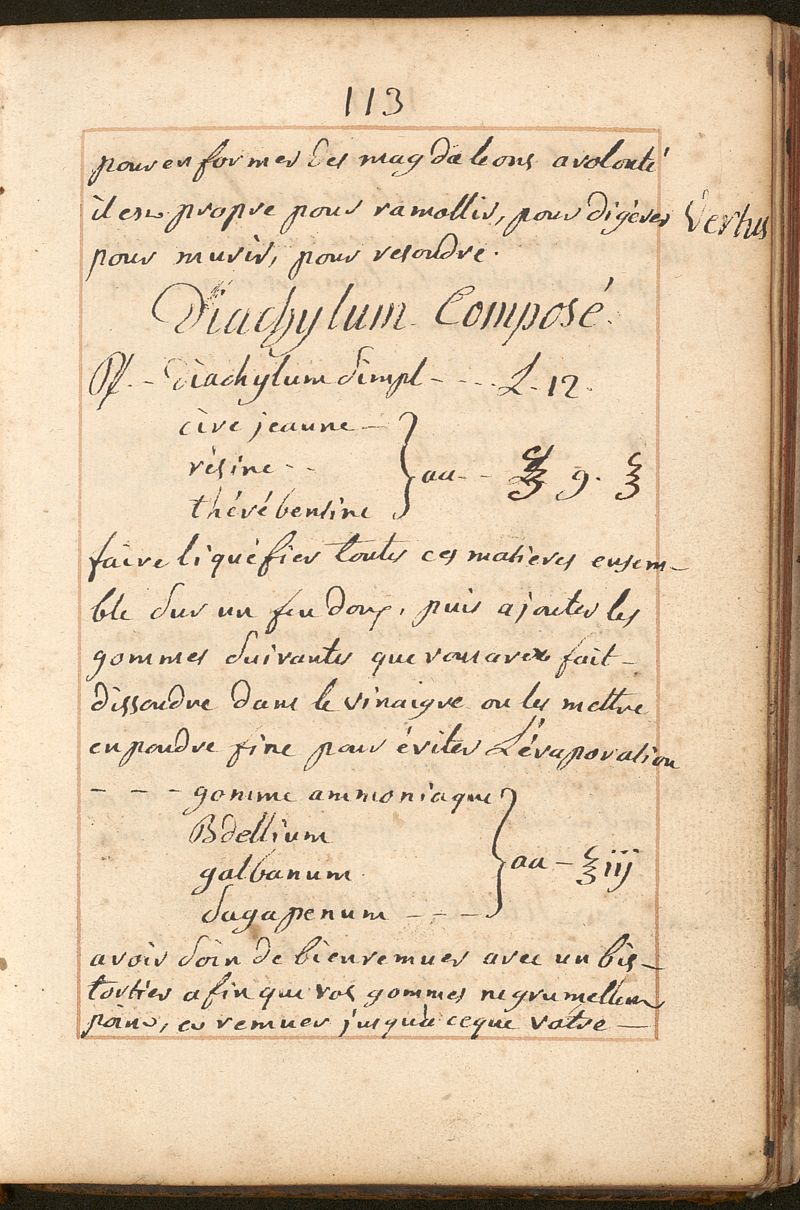 113
pour en former des magdaleons avolonté
il est propre pour ramollir, pour digérer Vertus
pour murir, pour resoudre.
Diachylum Composé.
Pf. - diachylum simpl - - - . L. 12.
cire jeaune -
résine - -
thérébentine
} aa - - 9. ℥
faire liquéfier toutes ces matieres ensem-
ble sur un feu doux, puis ajouter les
gommes suivantes que vous avez fait -
dissoudre dans le vinaigre ou les mettre
en poudre fine pour éviter L'évaporation
- - - gomme ammoniaque
Bdellium
galbanum
sagapenum - - -
} aa - ℥ iij
avoir soin de bien remuer avec un bis-
tortier afin que vos gommes ne grumellent
point, et remuer jusqu'a ce que votre -